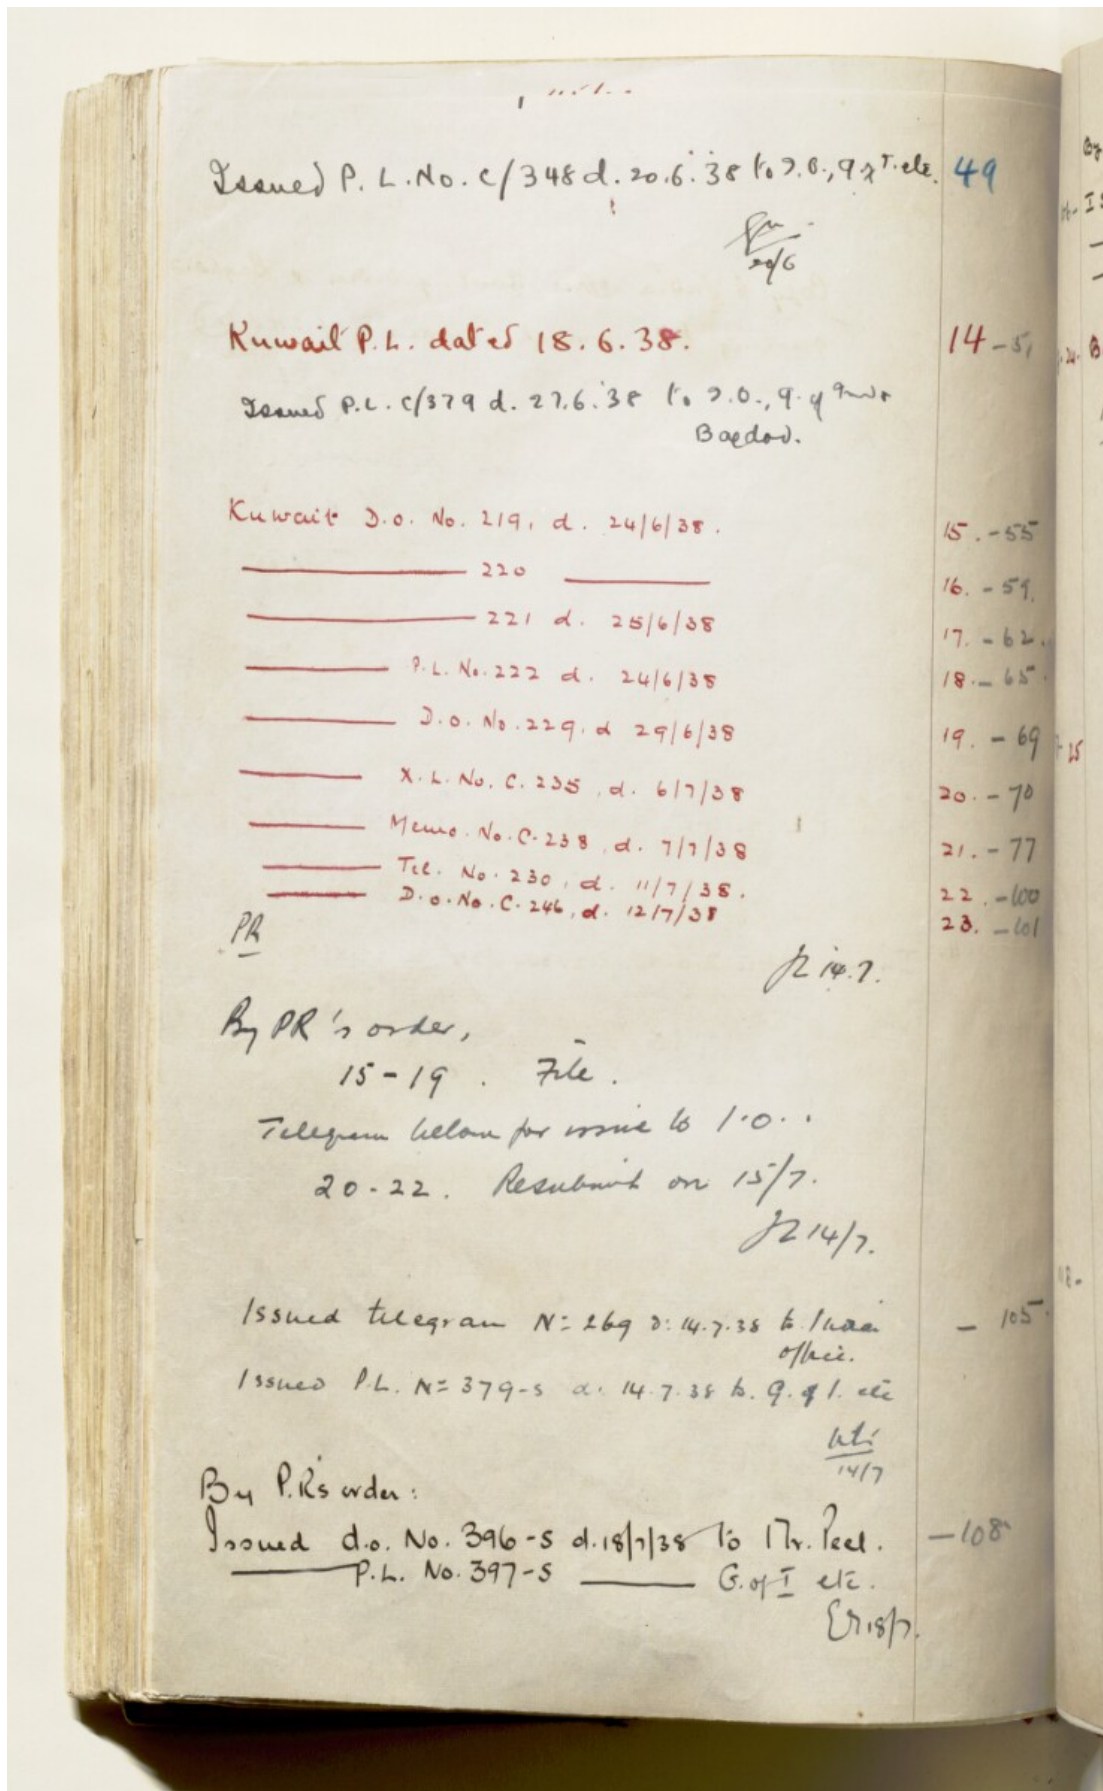 Issued P. L. No. C/348 d. 20.6.38 to I.O., G of I. etc. 49
20/6
Kuwait P.L. dated 18.6.38. 14 - 51
Issued P.L. C/379 d. 27.6.38 to I.O., G. of
Bagdad.
Kuwait D.O. No. 219, d. 24/6/38. 15. - 55
220 16. - 59.
221 d. 25/6/38 17. - 62.
P.L. No. 222 d. 24/6/38 18. - 65.
D.O. No. 229, d 29/6/38 19. - 69
X.L. No. C. 235, d. 6/7/38 20. - 70
Memo. No. C. 238, d. 7/7/38 21. - 77
Tel. No. 230, d. 11/7/38. 22. - 100
D.O. No. C. 246, d. 12/7/38 23. - 101
PR
14.7.
By PR's order,
15-19. File.
Telegram below for issue to I.O.
20-22. Resubmit on 15/7.
14/7.
Issued telegram No 269 d: 14.7.38 to India - 105
office.
Issued P.L. No 379-S d. 14.7.38 to G. of I. etc
14/7
By P.R's order:
Issued d.o. No. 396-S d. 18/7/38 to Mr. Peel. - 108
P.L. No. 397-S G. of I etc.
18/7.